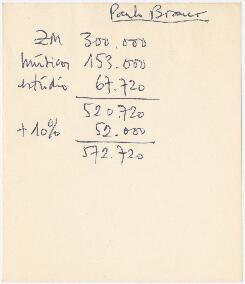 Paulo Branco
ZM 300.000
músicos 153.000
estúdio 67.720
520.720
+10% 52.000
572.720